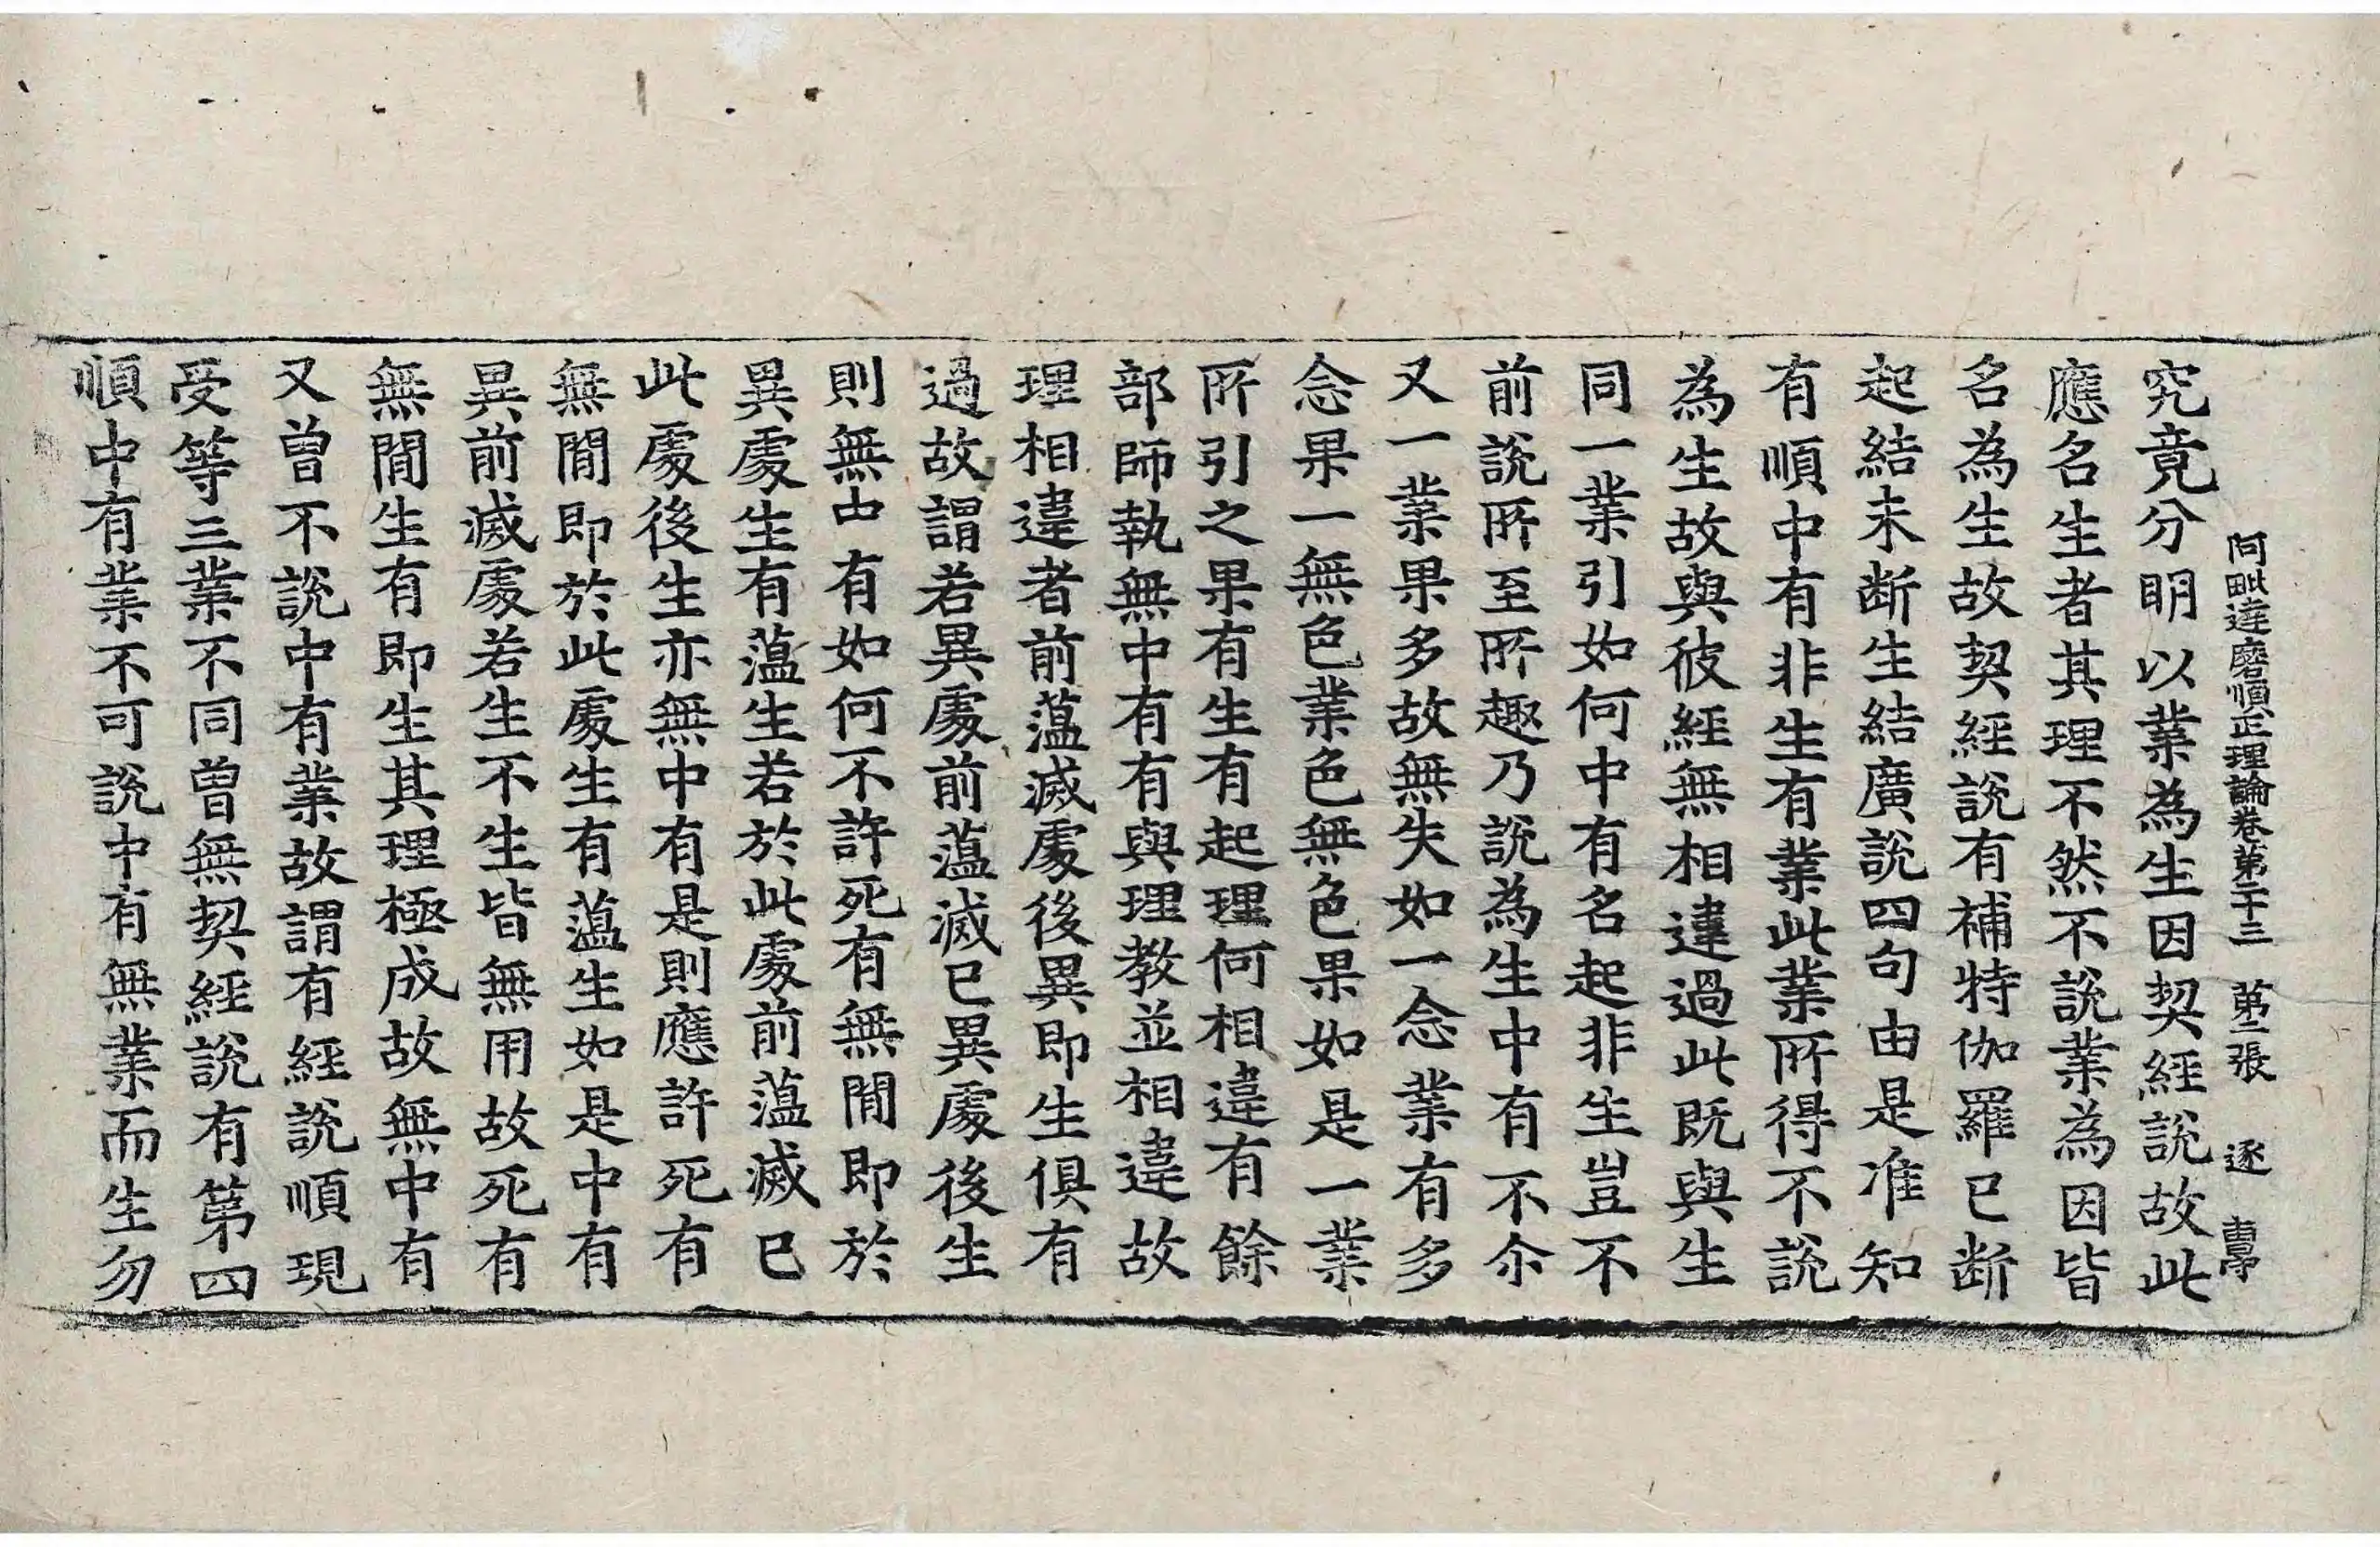 阿毗達磨順正理論卷第二十三 第二張 逐
究竟分明以業為生因契經說故此
應名生者其理不然不說業為因皆
名為生故契經說有補特伽羅已断
起結未断生結廣說四句由是准知
有順中有非生有業此業所得不說
為生故與彼經無相違過此既與生
同一業引如何中有名起非生豈不
前說所至所趣乃說為生中有不尒
又一業果多故無失如一念業有多
念果一無色業色無色果如是一業
所引之果有生有起理何相違有餘
部師執無中有有與理教並相違故
理相違者前蘊滅處後異即生俱有
過故謂若異處前蘊滅已異處後生
則無中有如何不許死有無間即於
異處生有蘊生若於此處前蘊滅已
此處後生亦無中有是則應許死有
無間即於此處生有蘊生如是中有
異前滅處若生不生皆無用故死有
無間生有即生其理極成故無中有
又曾不說中有業故謂有經說順現
受等三業不同曾無契經說有第四
順中有業不可說中有無業而生勿